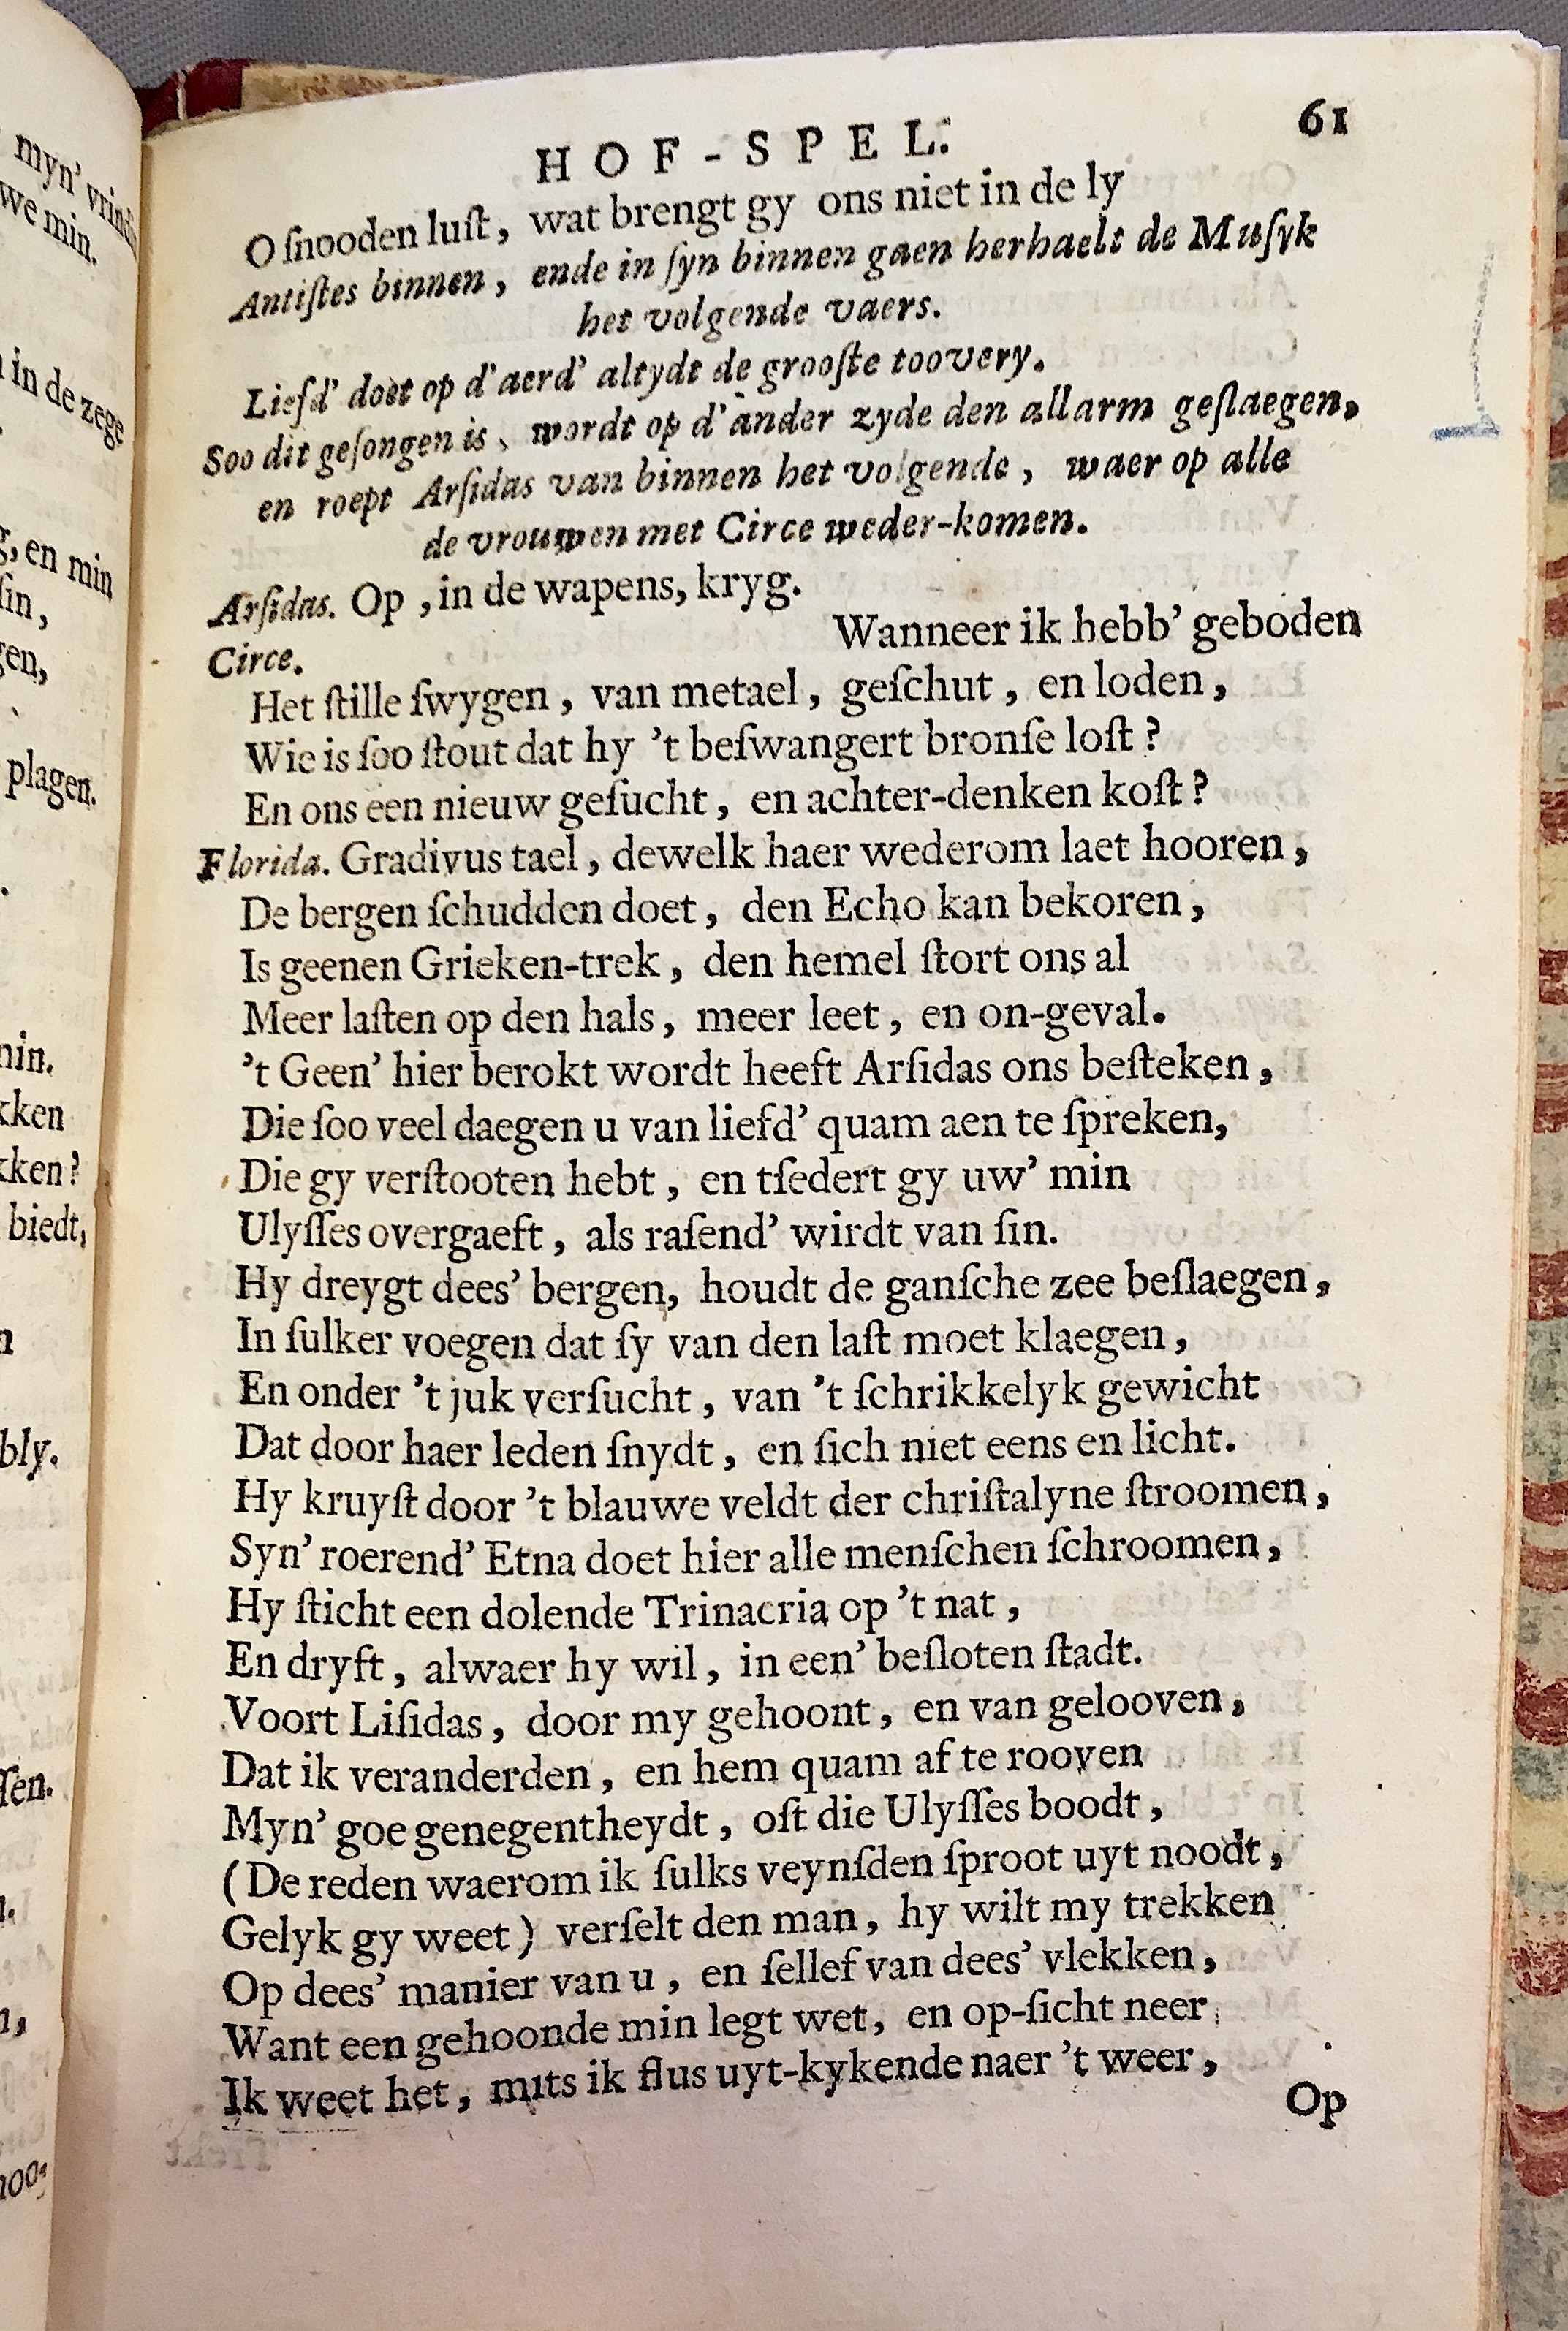 myn' vrindi
we min.
in de zege
g, en min
sin,
gen,
plagen.
min.
kken
kken?
biedt,
bly.
HOF-SPEL. 61
O ſnooden luſt, wat brengt gy ons niet in de ly
Antiſtes binnen, ende in ſyn binnen gaen herhaelt de Muſyk
het volgende vaers.
Liefd' doet op d'aerd' altydt de grooſte toovery.
Soo dit geſongen is, wordt op d'ander zyde den allarm geſlaegen,
en roept Arſidas van binnen het volgende, waer op alle
de vrouwen met Circe weder-komen.
Arſidas. Op, in de wapens, kryg.
Wanneer ik hebb' geboden
Circe.
Het ſtille ſwygen, van metael, geſchut, en loden,
Wie is ſoo ſtout dat hy 't beſwangert bronſe loſt?
En ons een nieuw geſucht, en achter-denken koſt?
Florida. Gradivus tael, dewelk haer wederom laet hooren,
De bergen ſchudden doet, den Echo kan bekoren,
Is geenen Grieken-trek, den hemel ſtort ons al
Meer laſten op den hals, meer leet, en on-geval.
't Geen' hier berokt wordt heeft Arſidas ons beſteken,
Die ſoo veel daegen u van liefd' quam aen te ſpreken,
Die gy verſtooten hebt, en tſedert gy uw' min
Ulyſſes overgaeft, als raſend' wirdt van ſin.
Hy dreygt dees' bergen, houdt de ganſche zee beſlaegen,
In ſulker voegen dat ſy van den laſt moet klaegen,
En onder 't juk verſucht, van 't ſchrikkelyk gewicht
Dat door haer leden ſnydt, en ſich niet eens en licht.
Hy kruyſt door 't blauwe veldt der chriſtalyne ſtroomen,
Syn' roerend' Etna doet hier alle menſchen ſchroomen,
Hy ſticht een dolende Trinacria op 't nat,
En dryft, alwaer hy wil, in een' beſloten ſtadt.
Voort Liſidas, door my gehoont, en van gelooven,
Dat ik veranderden, en hem quam af te rooven
Myn' goe genegentheydt, oſt die Ulyſſes boodt,
(De reden waerom ik ſulks veynſden ſproot uyt noodt,
Gelyk gy weet) verſelt den man, hy wilt my trekken
Op dees' manier van u, en ſellef van dees' vlekken,
Want een gehoonde min legt wet, en op-ſicht neer,
Ik weet het, mits ik flus uyt-kykende naer 't weer,
Op